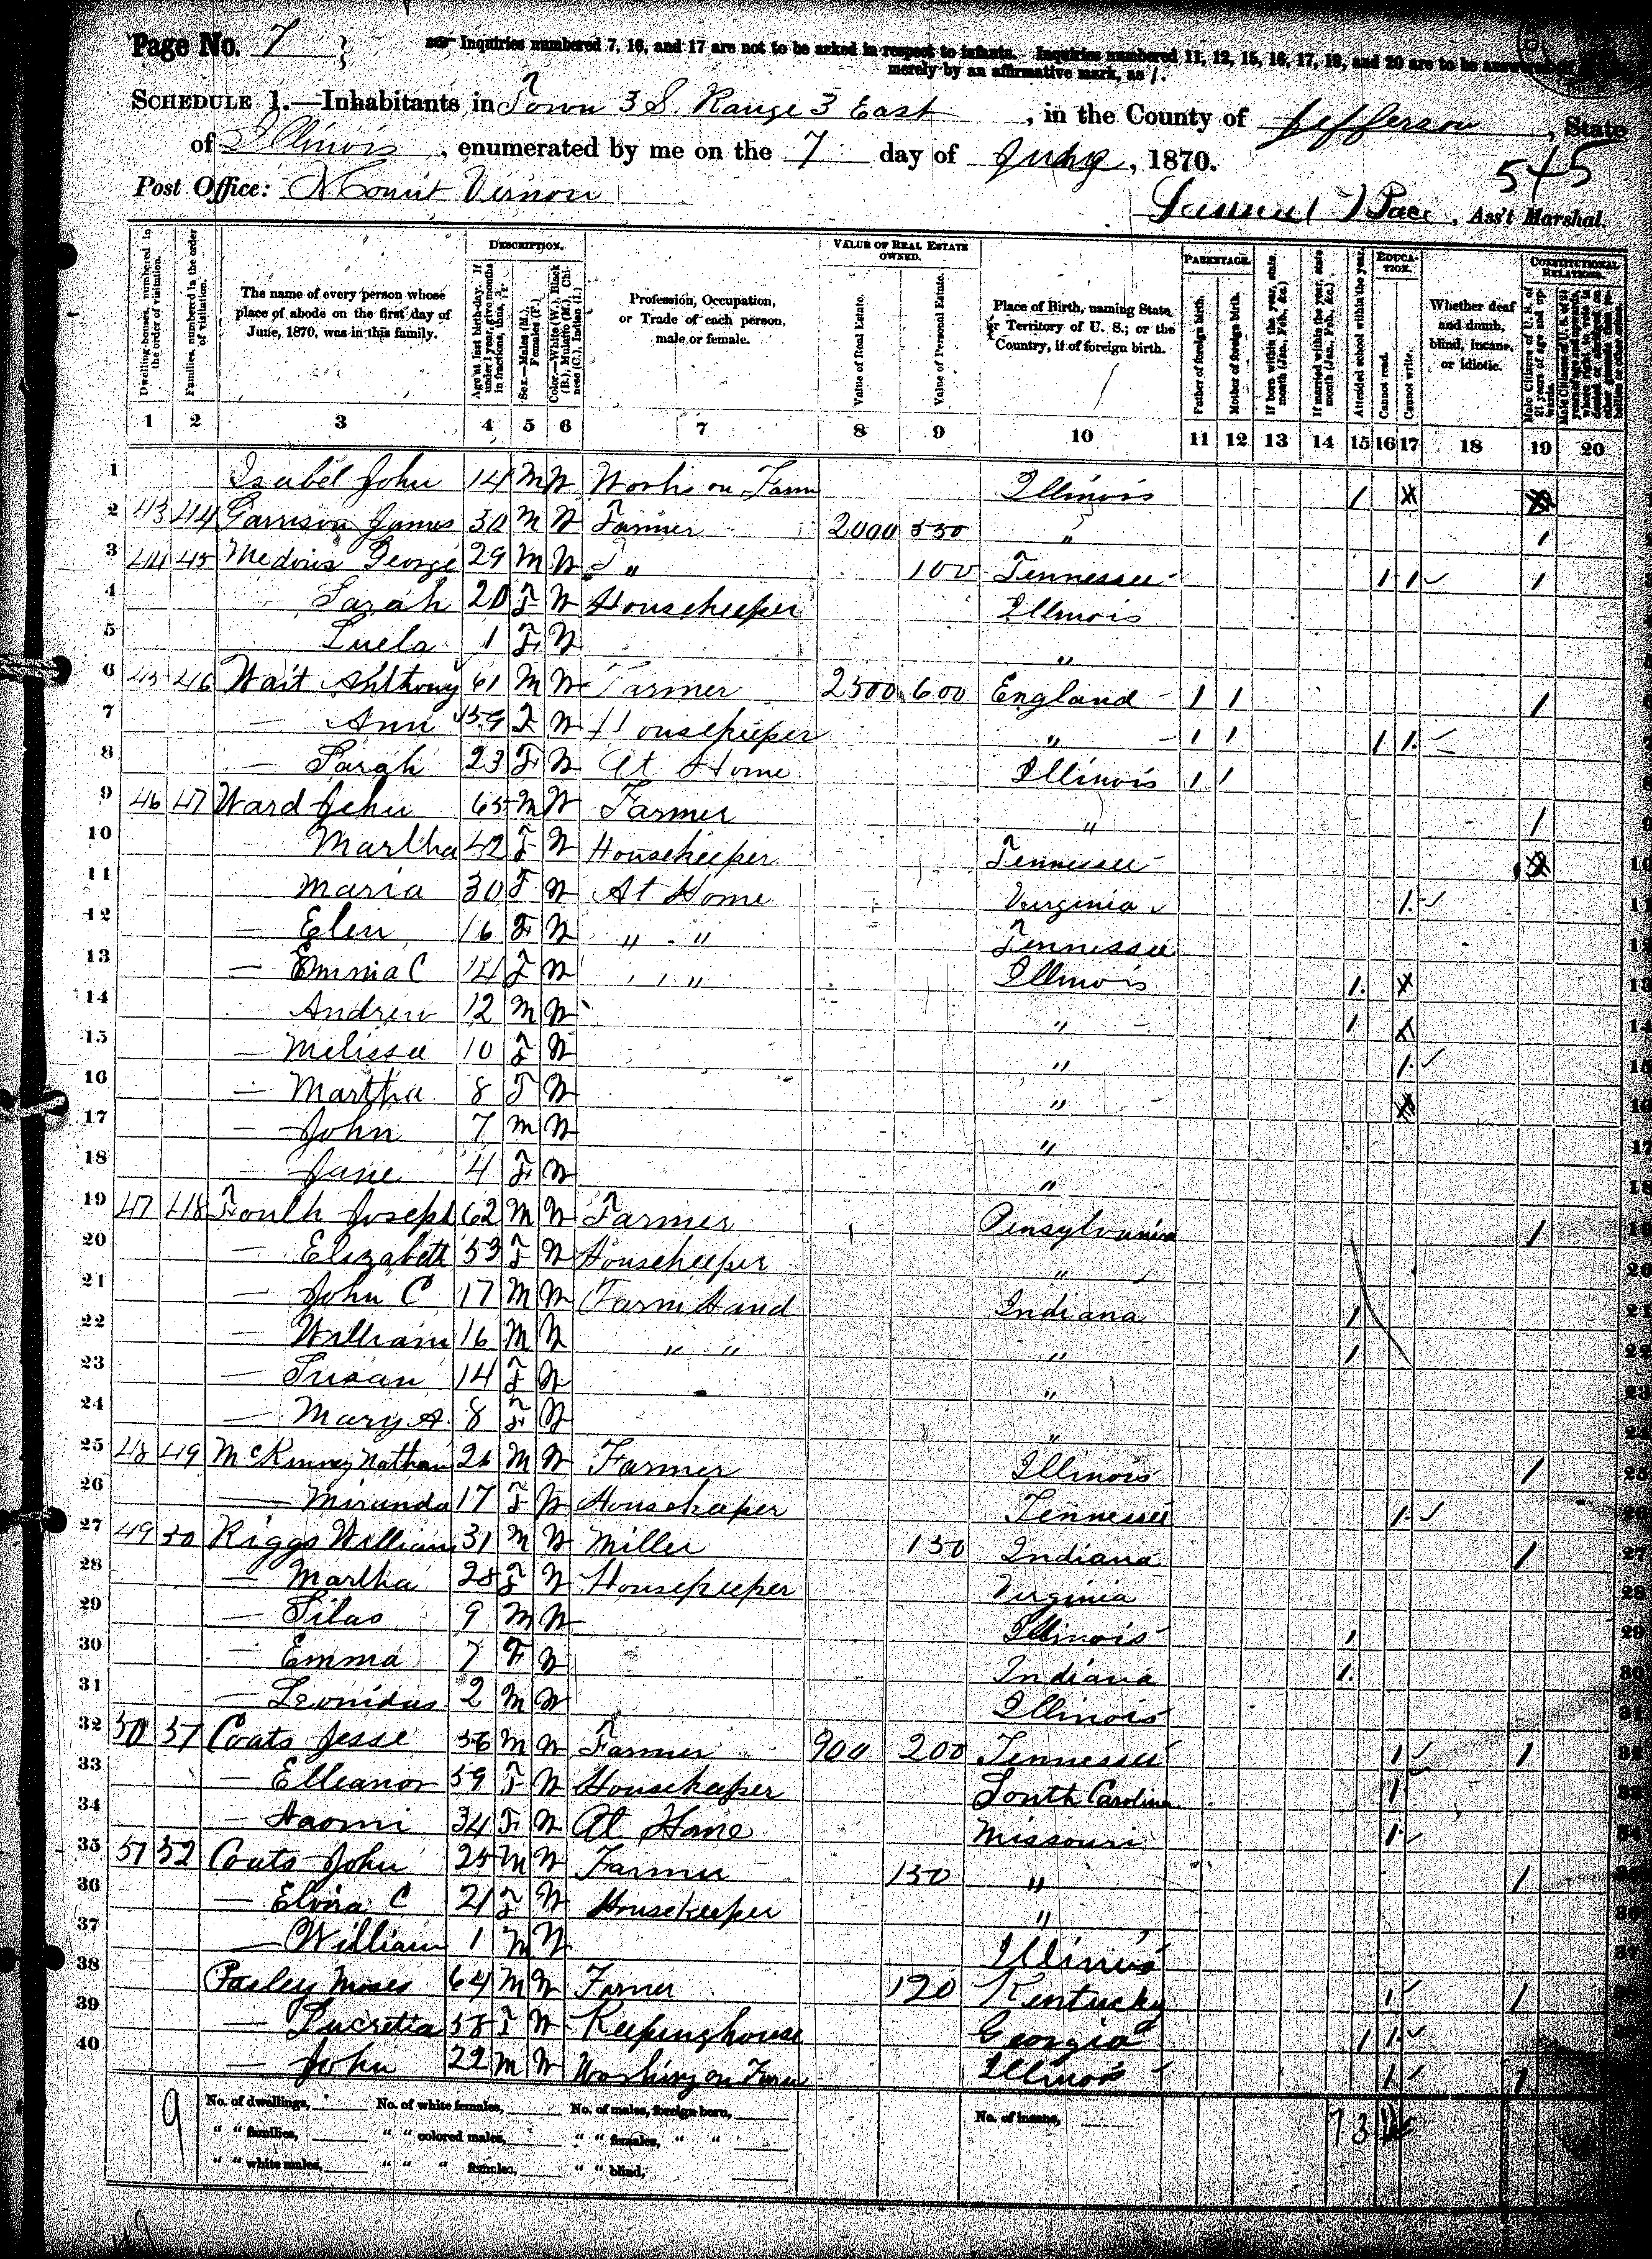 Page No. 7
Inquiries numbered 7, 16, and 17 are not to be asked in respect to infants. Inquiries numbered 11, 12, 15, 16, 17, 19, and 20 are to be
merely by an affirmative mark, as /.
SCHEDULE 1.—Inhabitants in Town 3 S. Range 3 East, in the County of Jefferson, State
of Illinois, enumerated by me on the 7 day of July, 1870.
545
Post Office: Mount Vernon
Samuel Pace, Ass't Marshal.
DESCRIPTION. VALUE OF REAL ESTATE OWNED. PARENTAGE. EDUCATION. CONSTITUTIONAL RELATIONS.
Dwelling-houses, numbered in the order of visitation.
Families, numbered in the order of visitation.
The name of every person whose place of abode on the first day of June, 1870, was in this family.
Age at last birth-day. If under 1 year, give months in fractions, thus,
Sex.—Males (M.), Females (F.)
Color.—White (W.), Black (B.), Mulatto (M.), Chinese (C.), Indian (I.)
Profession, Occupation, or Trade of each person, male or female.
Value of Real Estate.
Value of Personal Estate.
Place of Birth, naming State or Territory of U. S.; or the Country, if of foreign birth.
Father of foreign birth.
Mother of foreign birth.
If born within the year, state month (Jan., Feb., &c.)
If married within the year, state month (Jan., Feb., &c.)
Attended school within the year.
Cannot read.
Cannot write.
Whether deaf and dumb, blind, insane, or idiotic.
Male Citizens of U. S. of 21 years of age and upwards.
1 2 3 4 5 6 7 8 9 10 11 12 13 14 15 16 17 18 19 20
1 Isabel John 14 M W Works on Farm Illinois /
2 43 44 Garrison James 30 M W Farmer 2000 550 " /
3 44 45 George 29 M W " 100 Tennessee / / /
4 Sarah 20 F W Housekeeper Illinois
5 Luela 1 F W "
6 45 46 Wait Anthony 61 M W Farmer 2500 600 England / / /
7 — Ann 59 F W Housekeeper " / / / /
8 — Sarah 23 F W At Home Illinois / /
9 46 47 Ward John 65 M W Farmer " /
10 Martha 42 F W Housekeeper Tennessee
11 Maria 30 F W At Home Virginia /
12 — Elen 16 F W " " Tennessee
13 — Emma C 14 F W " " Illinois /
14 Andrew 12 M W " /
15 — Melissa 10 F W " /
16 — Martha 8 F W "
17 — John 7 M W "
18 — Jane 4 F W "
19 47 48 Joseph 62 M W Farmer Pensylvania /
20 — Elizabeth 53 F W Housekeeper "
21 — John C 17 M W Farm Hand Indiana /
22 — William 16 M W " " " /
23 — Susan 14 F W "
24 — Mary A. 8 F W "
25 48 49 McKinney Nathan 26 M W Farmer Illinois /
26 — Miranda 17 F W Housekeeper Tennessee /
27 49 50 Riggs William 31 M W Miller 150 Indiana /
28 — Martha 28 F W Housekeeper Virginia
29 — Silas 9 M W Illinois /
30 — Emma 7 F W Indiana /
31 — Leonidus 2 M W Illinois
32 50 51 Coats Jesse 56 M W Farmer 900 200 Tennessee / /
33 — Elleanor 59 F W Housekeeper South Carolina /
34 — Naomi 34 F W At Home Missouri /
35 51 52 Coats John 25 M W Farmer 150 " /
36 — Elvira C 21 F W Housekeeper "
37 — William 1 M W Illinois
38 Pasley Moses 64 M W Farmer 120 Kentucky / /
39 — Lucretia 58 F W Keepinghouse Georgia / /
40 — John 22 M W Working on Farm Illinois / /
9
No. of dwellings, No. of white females, No. of males, foreign born, No. of insane,
" " families, " " colored males, " " females, " "
" " white males, " " " females, " " blind,